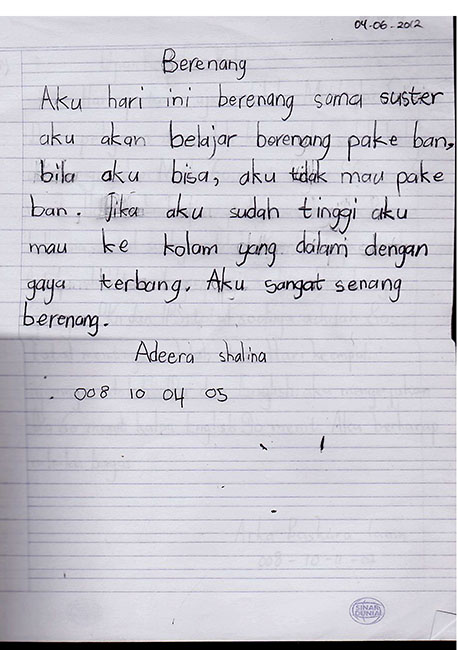 04-06-2012
Berenang
Aku hari ini berenang sama suster
aku akan belajar berenang pake ban,
bila aku bisa, aku tidak mau pake
ban. Jika aku sudah tinggi aku
mau ke kolam yang dalam dengan
gaya terbang. Aku sangat senang
berenang.
Adeera shalina
008 10 04 05
SINAR
DUNIA